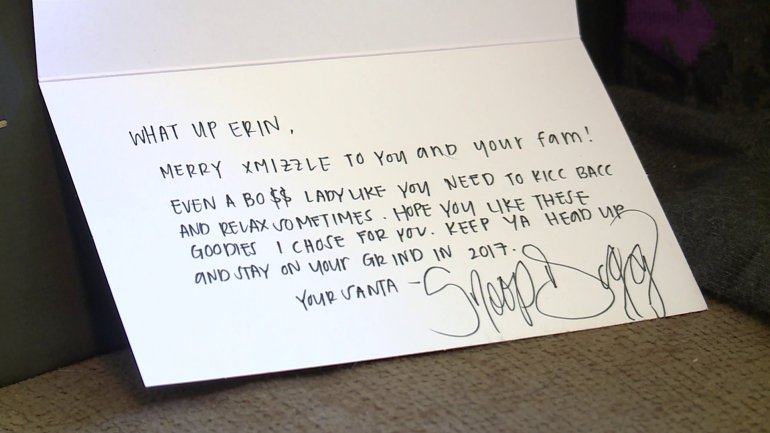 WHAT UP ERIN,
MERRY XMIZZLE TO YOU and your fam!
EVEN A BO$$ LADY LIKE YOU NEED TO KICC BACC
AND RELAX SOMETIMES. HOPE YOU LIKE THESE
GOODIES I CHOSE FOR YOU. KEEP YA HEAD UP
AND STAY ON YOUR GRIND IN 2017.
YOUR SANTA - Snoop Dogg